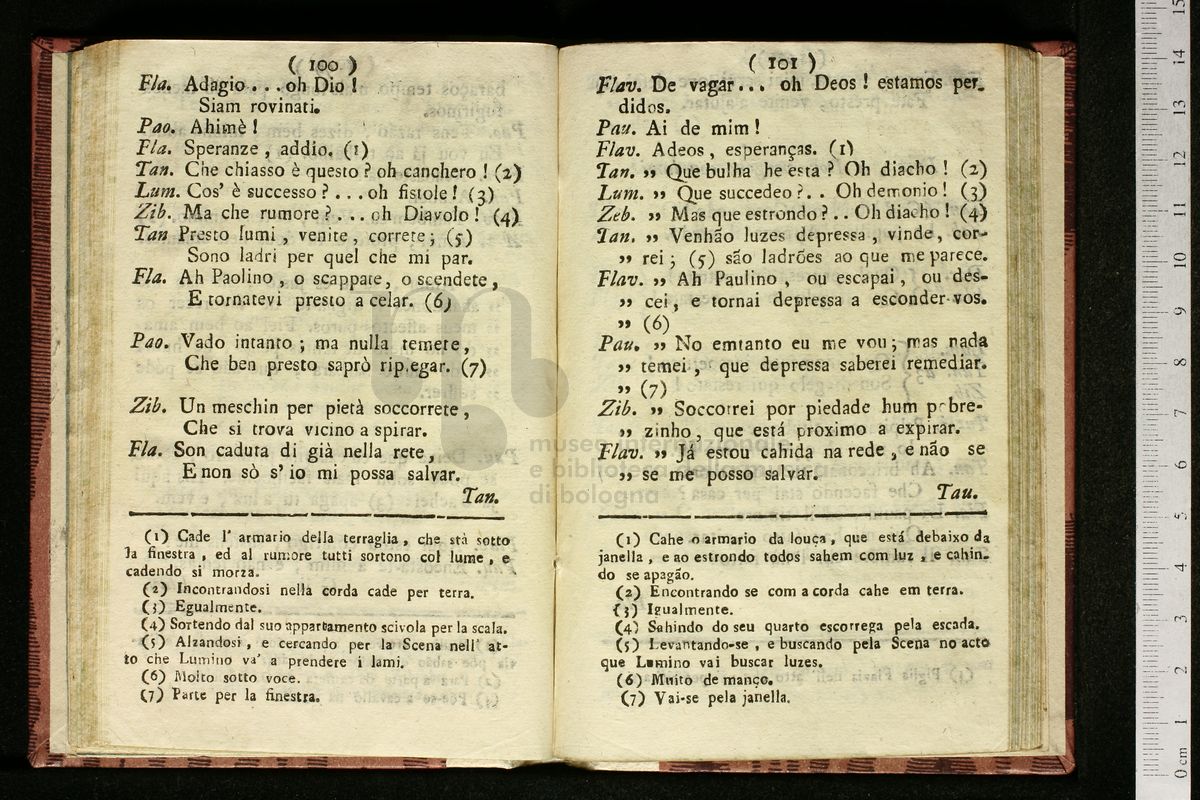 ( 100 )
Fla. Adagio . . . oh Dio !
Siam rovinati.
Pao. Ahimè !
Fla. Speranze , addio. (1)
Tan. Che chiasso è questo ? oh canchero ! (2)
Lum. Cos' è successo ? . . . oh fistole ! (3)
Zib. Ma che rumore ? . . . oh Diavolo ! (4)
Tan Presto lumi , venite , correte ; (5)
Sono ladri per quel che mi par.
Fla. Ah Paolino , o scappate , o scendete ,
E tornatevi presto a celar. (6)
Pao. Vado intanto ; ma nulla temete ,
Che ben presto saprò rip.egar. (7)
Zib. Un meschin per pietà soccorrete ,
Che si trova vicino a spirar.
Fla. Son caduta di già nella rete ,
E non sò s' io mi possa salvar.
Tan.
(1) Cade l' armario della terraglia , che stà sotto
la finestra , ed al rumore tutti sortono col lume , e
cadendo si morza.
(2) Incontrandosi nella corda cade per terra.
(3) Egualmente.
(4) Sortendo dal suo appartamento scivola per la scala.
(5) Alzandosi , e cercando per la Scena nell' at-
to che Lumino va' a prendere i lami.
(6) Molto sotto voce.
(7) Parte per la finestra.
( 101 )
Flav. De vagar... oh Deos ! estamos per-
didos.
Pau. Ai de mim !
Flav. Adeos , esperanças. (1)
Tan. ,, Que bulha he esta ? Oh diacho ! (2)
Lum. ,, Que succedeo ?. . Oh demonio ! (3)
Zeb. ,, Mas que estrondo ? . . Oh diacho ! (4)
Tan. ,, Venhão luzes depressa , vinde , cor-
,, rei ; (5) são ladrões ao que me parece.
Flav. ,, Ah Paulino , ou escapai , ou des-
,, cei , e tornai depressa a esconder-vos.
,, (6)
Pau. ,, No emtanto eu me vou ; mas nada
,, temei , que depressa saberei remediar.
,, (7)
Zib. ,, Soccorrei por piedade hum pobre-
,, zinho , que está proximo a expirar.
Flav. ,, Já estou cahida na rede , e não se
,, se me posso salvar.
Tau.
(1) Cahe o armario da louça , que está debaixo da
janella , e ao estrondo todos sahem com luz , e cahin-
do se apagão.
(2) Encontrando se com a corda cahe em terra.
(3) Igualmente.
(4) Sahindo do seu quarto escorrega pela escada.
(5) Levantando-se , e buscando pela Scena no acto
que Lumino vai buscar luzes.
(6) Muito de manço.
(7) Vai-se pela janella.
museo internazionale
e biblioteca della musica
di bologna
0 cm 1 2 3 4 5 6 7 8 9 10 11 12 13 14 15